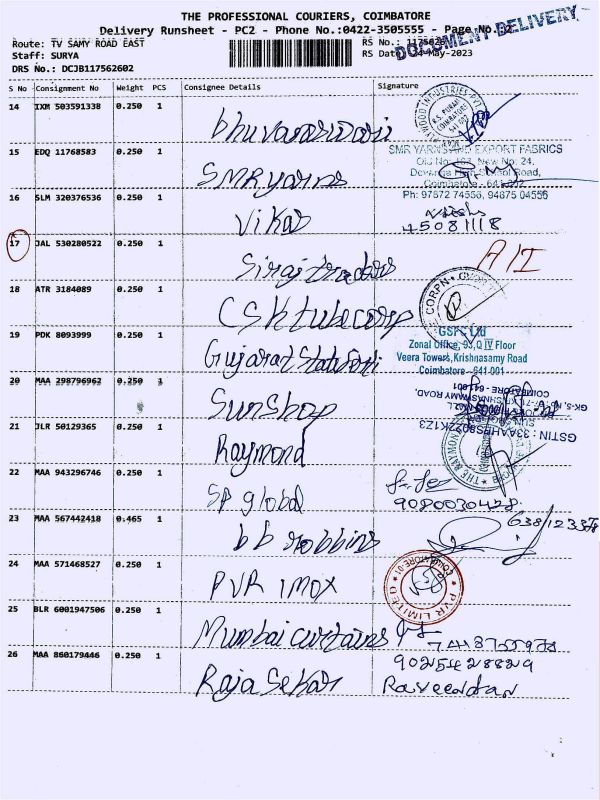 THE PROFESSIONAL COURIERS, COIMBATORE
Delivery Runsheet - PC2 - Phone No.:0422-3505555 - Page No.
DOCUMENT DELIVERY
Route: TV SAMY ROAD EAST
RS No.:
Staff: SURYA
RS Date: 24-May-2023
DRS No.: DCJB117562602
S No Consignment No Weight PCS Consignee Details Signature
14 IXM 503591338 0.250 1 bhuvaneswari
15 EDQ 11768583 0.250 1 SMR yarns
SMR YARNS AND EXPORT FABRICS
Old No: 103, New No: 24,
School Road,
Coimbatore - 641 002
Ph: 97572 74556, 94875 04556
16 SLM 320376536 0.250 1 Vikas
45081118
17 JAL 530280522 0.250 1 Siraj traders
18 ATR 3184089 0.250 1 CSK tube corp
19 PDK 8093999 0.250 1 Gujarat State
GSFC Ltd
Zonal Office, 93, Q IV Floor
Veera Towers, Krishnasamy Road
Coimbatore - 641 001
20 MAA 298796962 0.250 1 Sunshop
COIMBATORE - 641 001
21 JLR 50129365 0.250 1 Raymond
22 MAA 943296746 0.250 1 SP global
9080030428
23 MAA 567442418 0.465 1 bb robbins
24 MAA 571468527 0.250 1 PVR imox
PVR LIMITED
COIMBATORE-01
25 BLR 6001947506 0.250 1 Mumbai curtains
26 MAA 860179446 0.250 1 Raja Sekar
9025428829
Raveendran